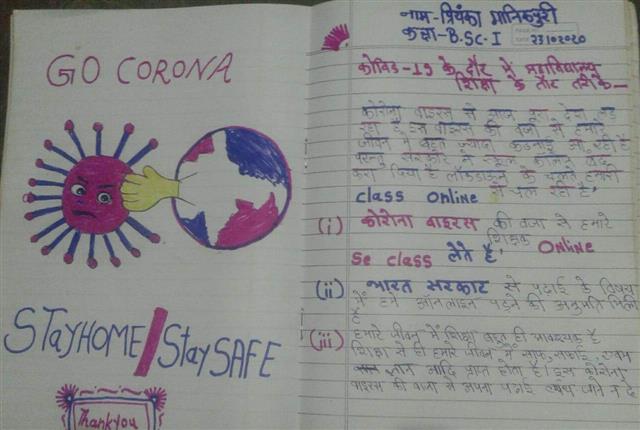 GO CORONA
STayHOME/StaySAFE
Thankyou
नाम-प्रियंका मानिकपुरी
कक्षा-B.SC-I
23102020
कोविड-19 के दौर में महाविद्यालय
शिक्षा के तौर तरीके-
कोरोना वाइरस से आज पूरा देश लड़
रहा है इस वाइरस की वजा से हमारे
जीवन में बहुत ज्यादा कठनाई आ रही है
परन्तु सरकार ने स्कूल कॉलेज बंद
करा दिया है लॉकडाउन के चलते हमारी
class online से चल रही है'
(i) कोरोना वाइरस की वजा से हमारे
शिक्षक online
se class लेते है'
(ii) भारत सरकार से पढ़ाई के विषय
में हमे ऑनलाइन पढ़ने की अनुमति मिली
है
(iii) हमारे जीवन में शिक्षा बहुत ही आवश्यक है
शिक्षा से ही हमारे जीवन में साफ-सफाई एवम
ज्ञान आदि प्राप्त होता है। इस कोरोना
वाइरस की वजा से अपना पढ़ाई व्यर्थ जाने न दे